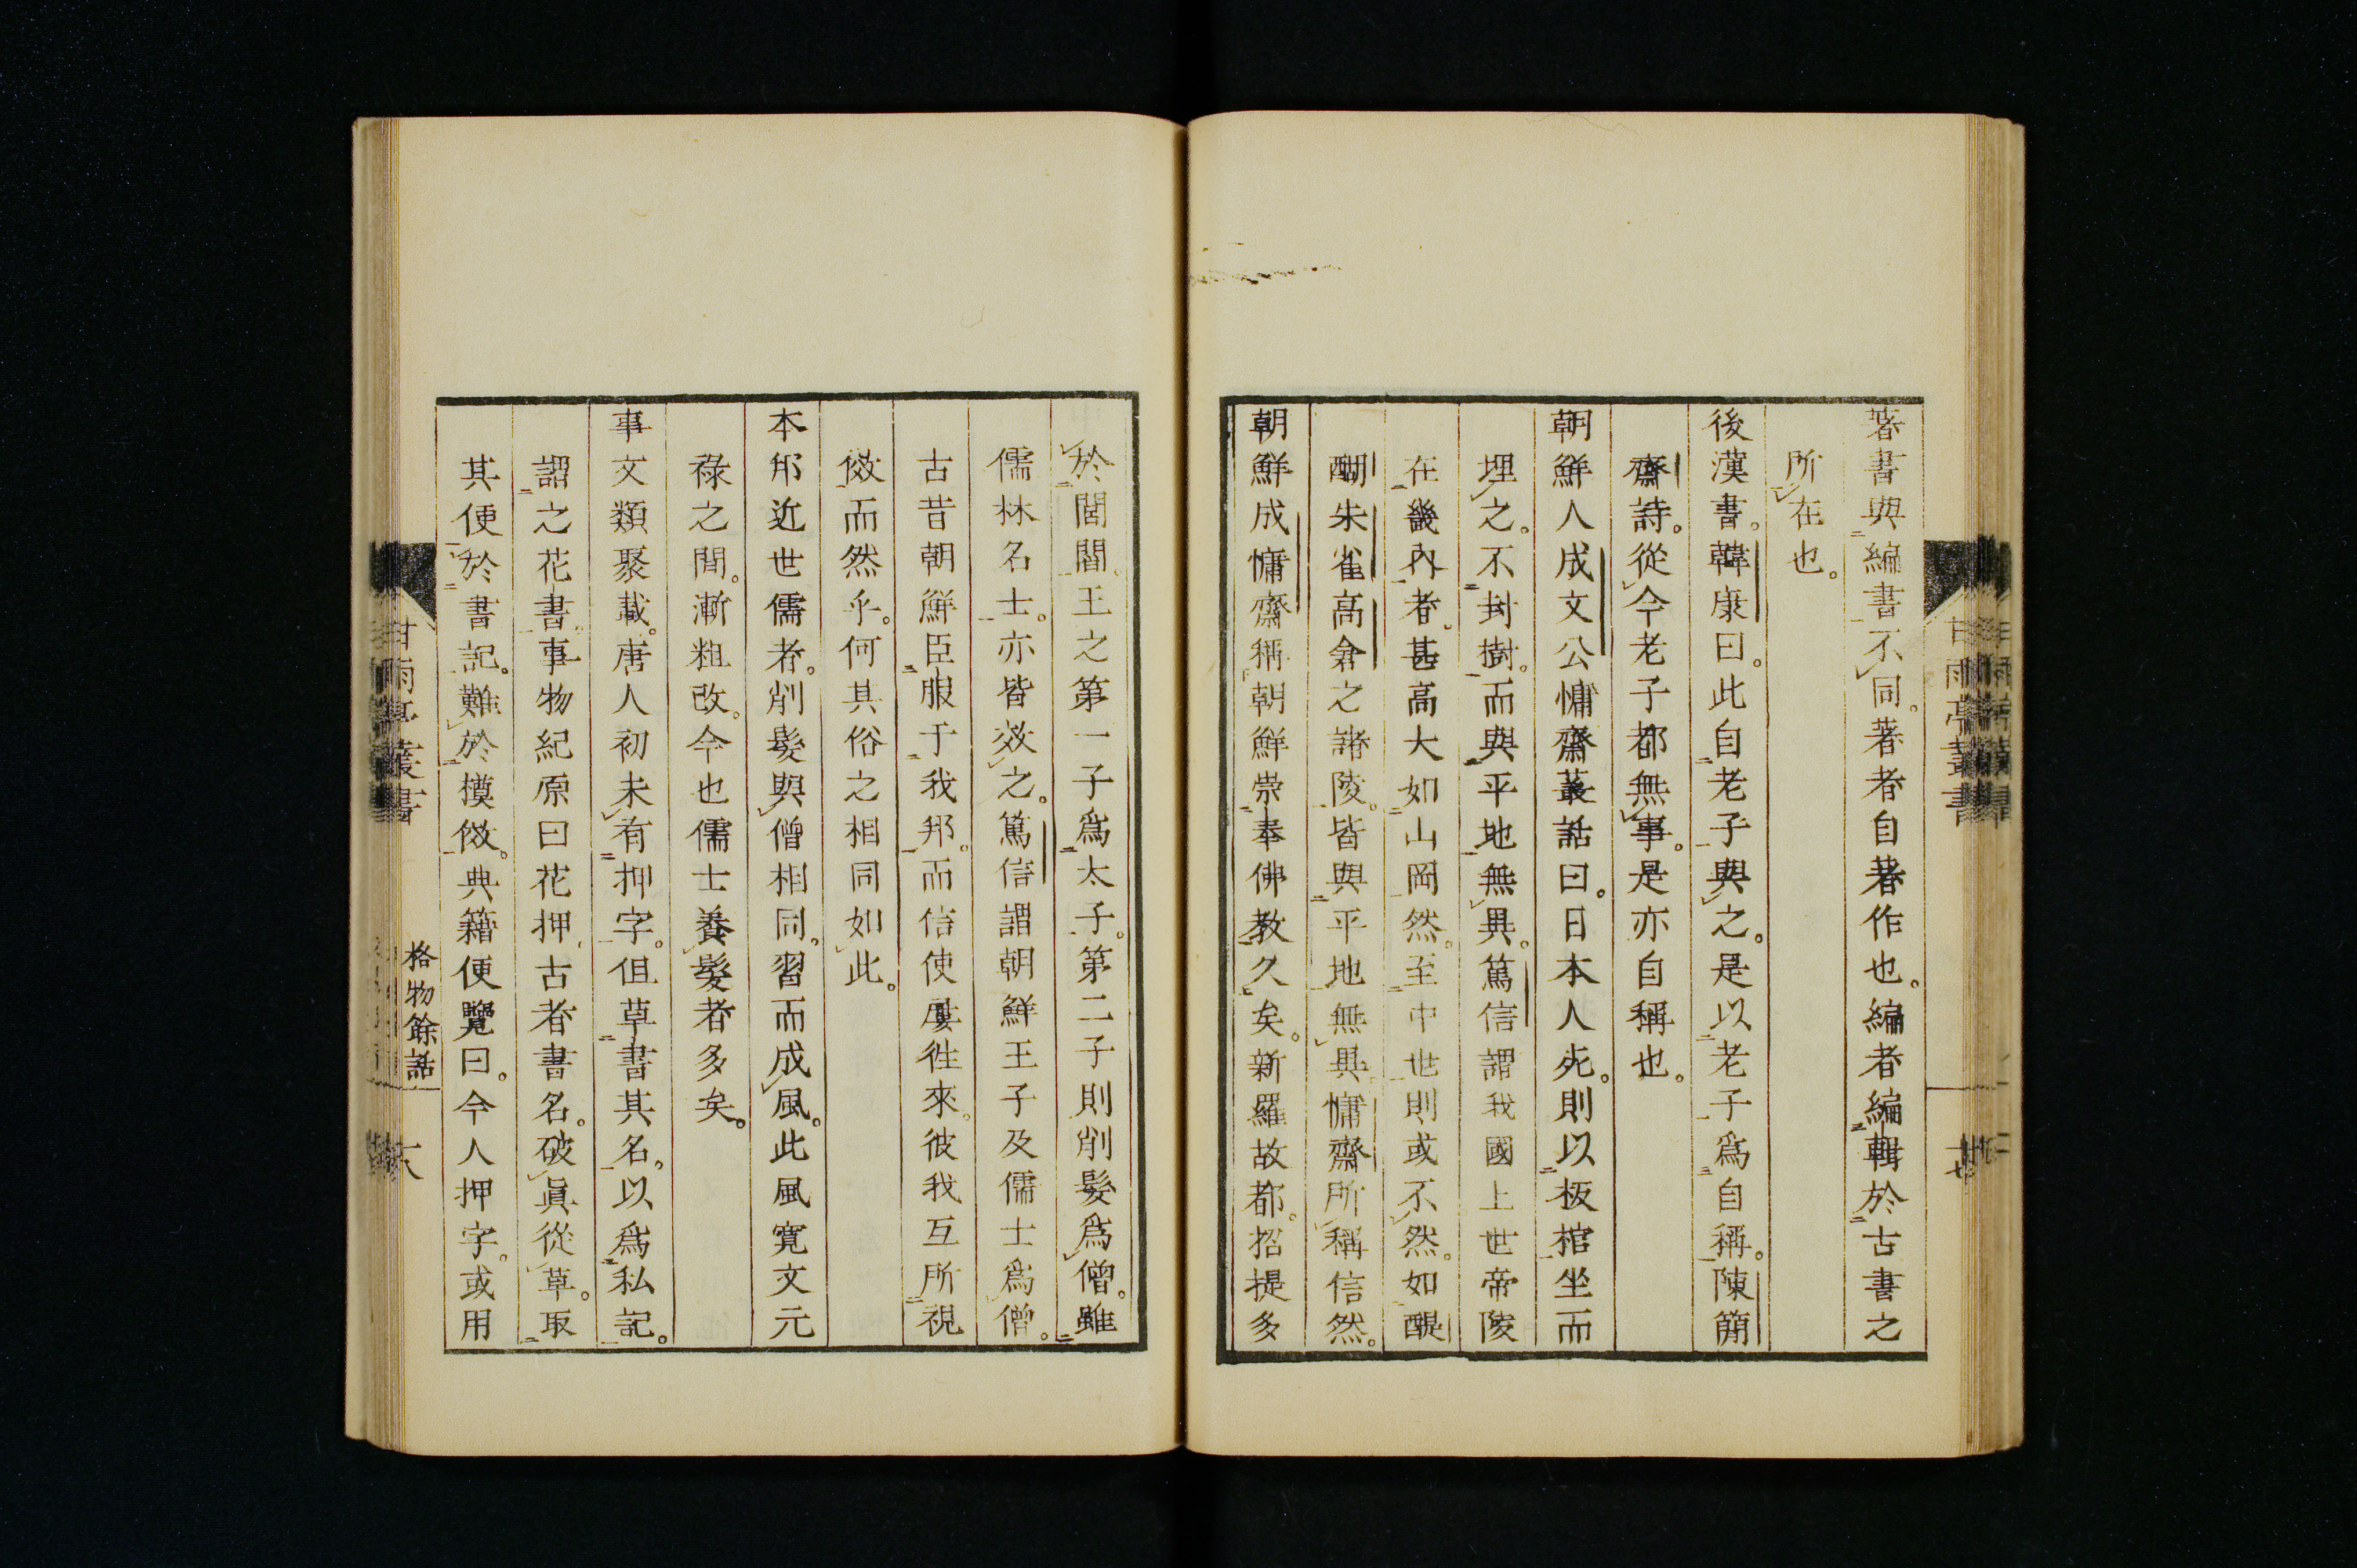 著書與編書不同。著者自著作也。編者編輯於古書之
所在也。
後漢書。韓康曰。此自老子與之。是以老子爲自稱。陳簡
齋詩。從今老子都無事。是亦自稱也。
朝鮮人成文公慵齋叢話曰。日本人死。則以板棺坐而
埋之。不封樹。而與平地無異。篤信謂我國上世帝陵
在畿內者。甚高大如山岡然。至中世則或不然。如醍
醐朱雀高倉之諸陵。皆與平地無異。慵齋所稱信然。
朝鮮成慵齋稱朝鮮崇奉佛教久矣。新羅故都。招提多
於閭閻。王之第一子爲太子。第二子則削髮爲僧。雖
儒林名士。亦皆效之。篤信謂朝鮮王子及儒士爲僧。
古昔朝鮮臣服于我邦。而信使屢徃來。彼我互所視
傚而然乎。何其俗之相同如此。
本邦近世儒者。削髮與僧相同。習而成風。此風寬文元
祿之間。漸粗改。今也儒士養髮者多矣。
事文類聚載。唐人初未有押字。但草書其名。以爲私記。
謂之花書。事物紀原曰花押。古者書名。破眞從草。取
其便於書記。難於摸傚。典籍便覽曰。今人押字。或用
甘雨亭叢書
格物餘話